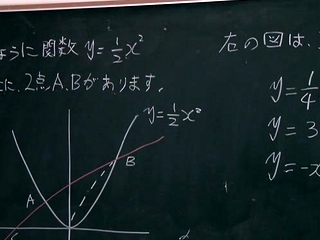 ように関数 y=1/2x²
に、2点A,Bがあります。
y=1/2x²
B
A
左の図は、
y=1/4
y=3
y=-x